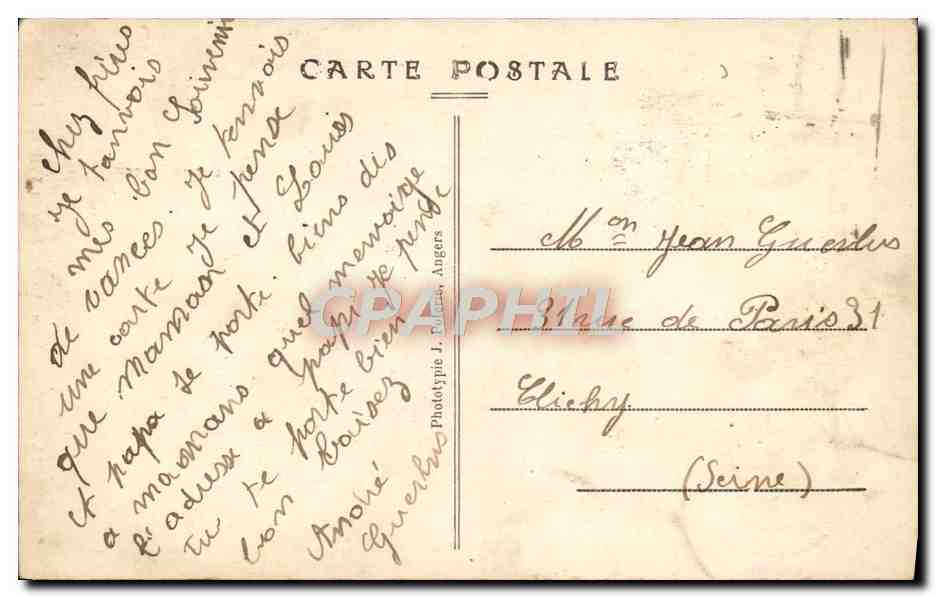 CARTE POSTALE
Chez frère
je t'anvois
mes bon Souvenir
de vances. je t'envois
une carte je pense
que Maman et Louis
et papa se porte biens dis
a maman quel m'envoige
l'adresse a papi je pense
tu te porte bien
bon baisez
André
Guerlus
Phototypie J. Angers
CPAPHIL
Mon Jean Guerlus
31 rue de Paris 31
Clichy
(Seine)